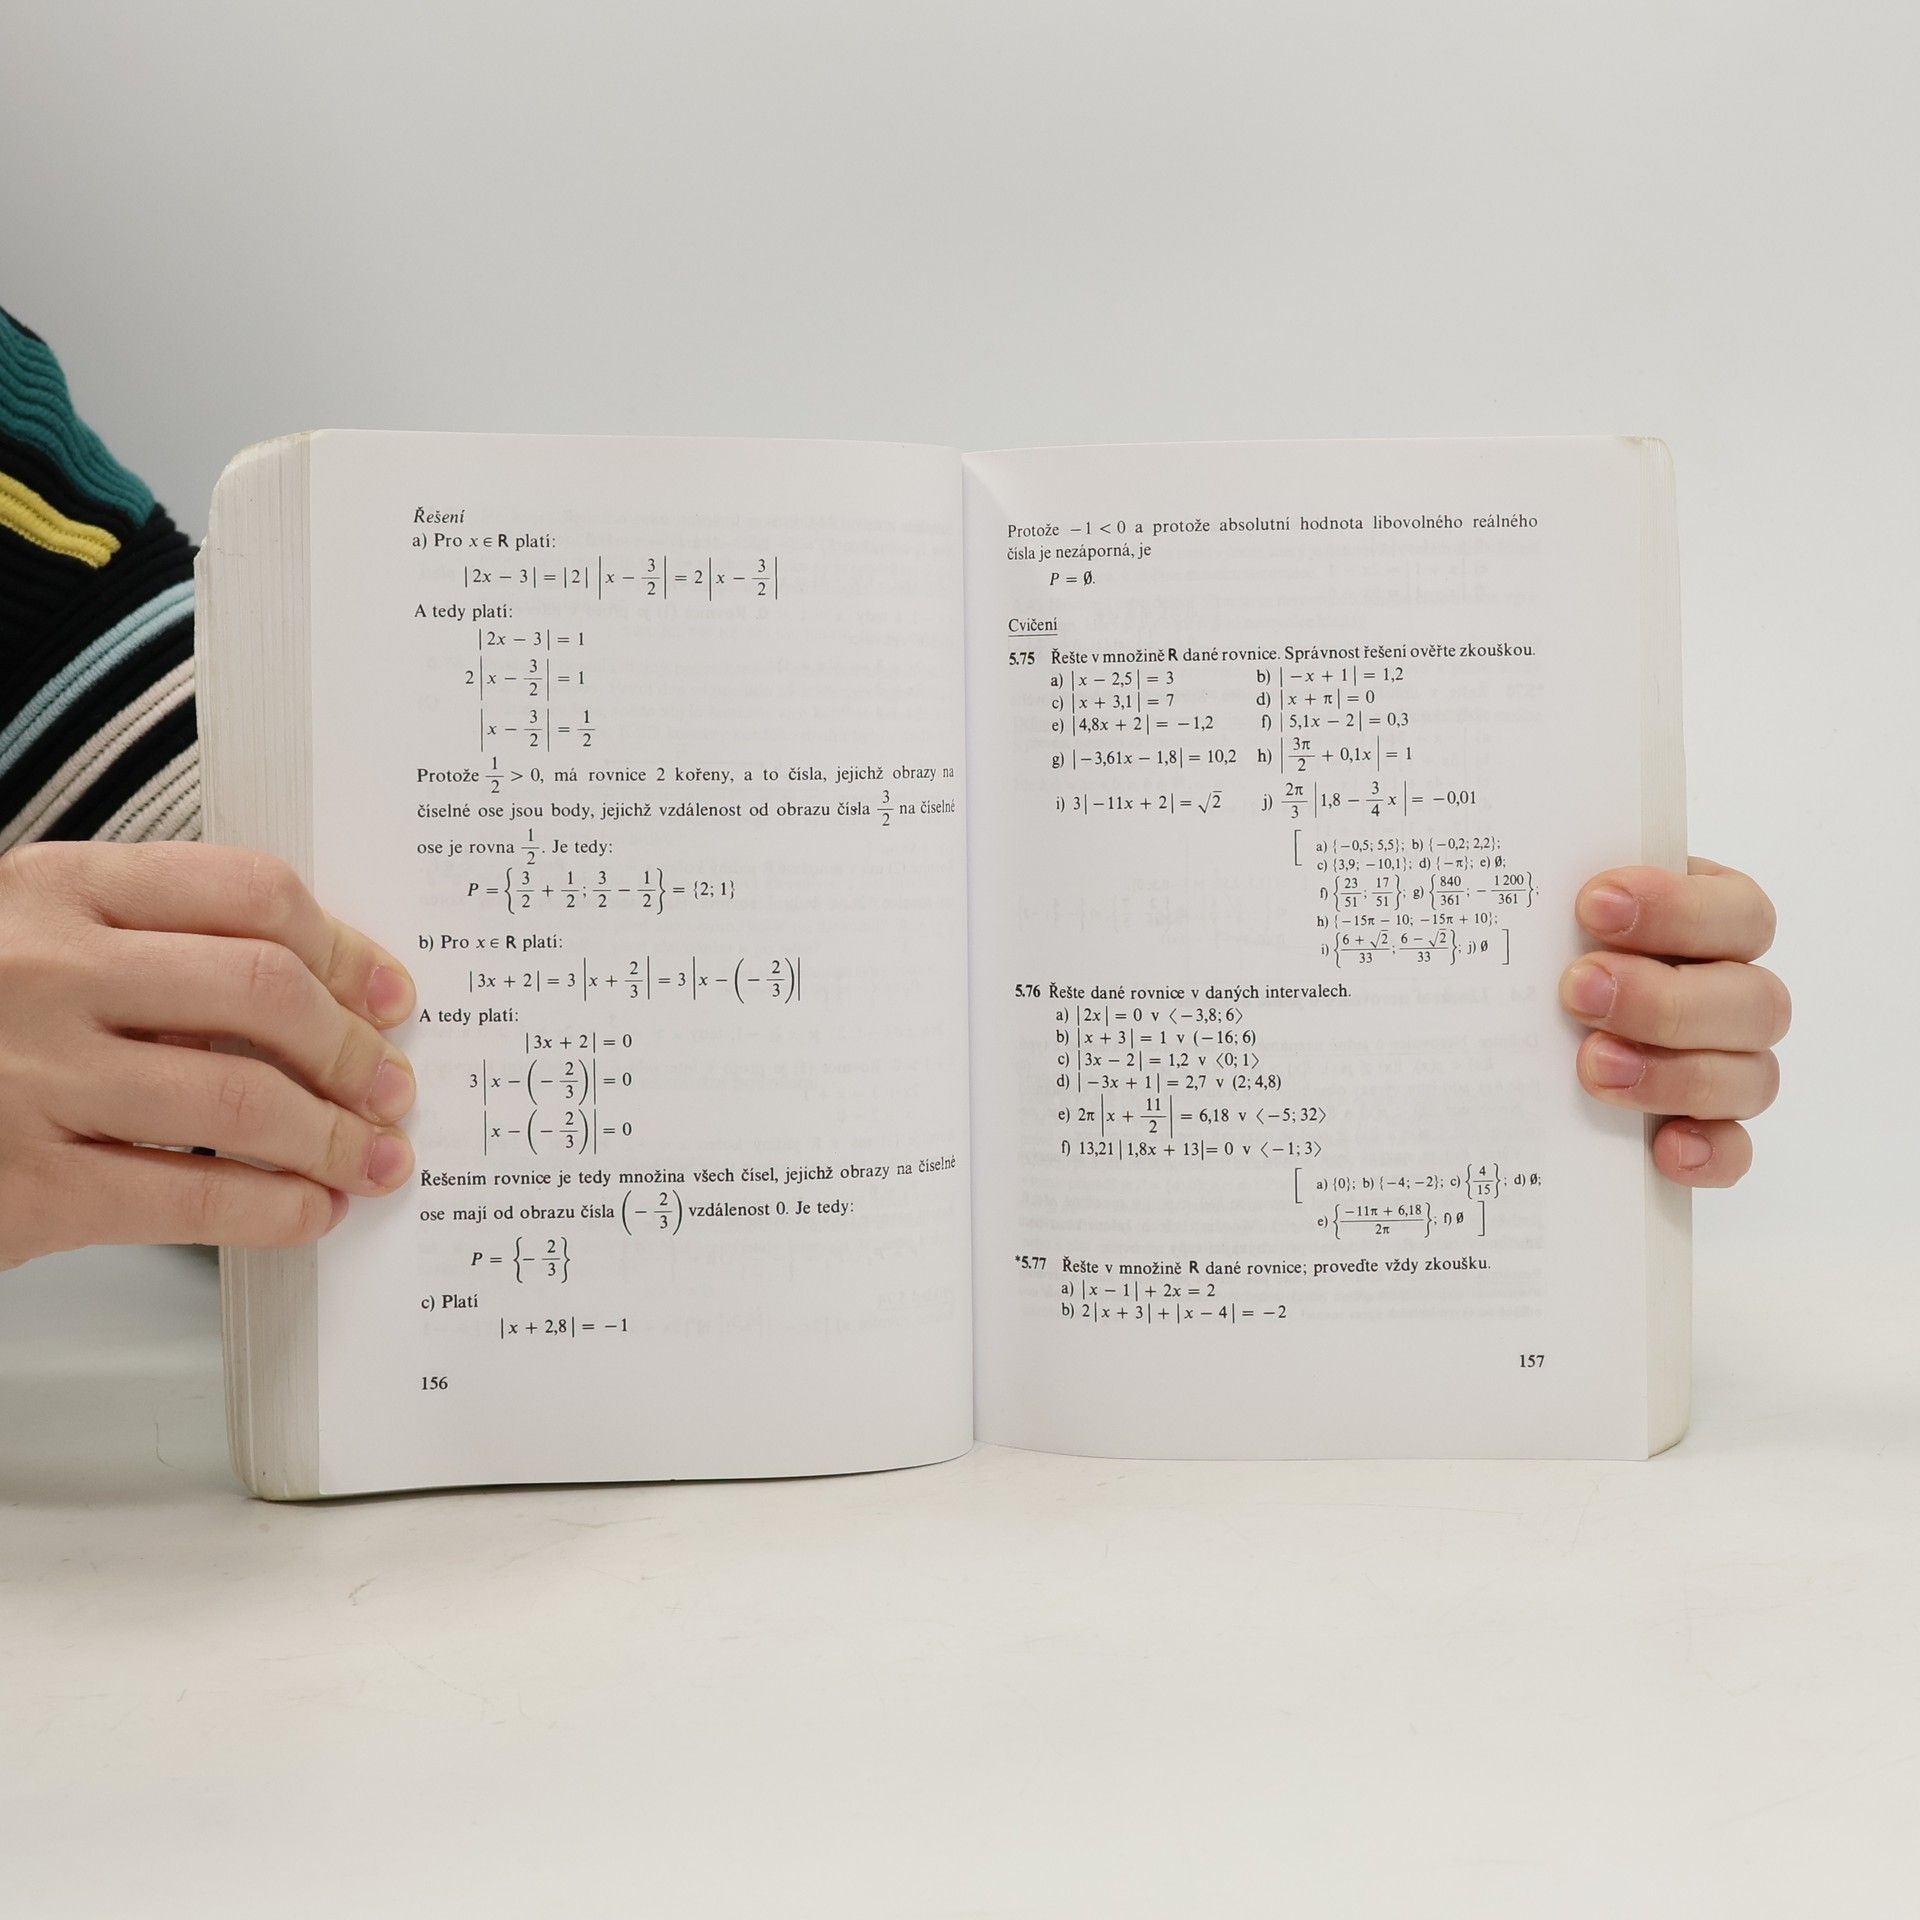 Řešení
a) Pro x ∈ R platí:
|2x − 3| = |2| |x − 3/2| = 2 |x − 3/2|
A tedy platí:
|2x − 3| = 1
2 |x − 3/2| = 1
|x − 3/2| = 1/2
Protože 1/2 > 0, má rovnice 2 kořeny, a to čísla, jejichž obrazy na
číselné ose jsou body, jejichž vzdálenost od obrazu čísla 3/2 na číselné
ose je rovna 1/2. Je tedy:
P = {3/2 + 1/2; 3/2 − 1/2} = {2; 1}
b) Pro x ∈ R platí:
|3x + 2| = 3 |x + 2/3| = 3 |x − (− 2/3)|
A tedy platí:
|3x + 2| = 0
3 |x − (− 2/3)| = 0
|x − (− 2/3)| = 0
Řešením rovnice je tedy množina všech čísel, jejichž obrazy na číselné
ose mají od obrazu čísla (− 2/3) vzdálenost 0. Je tedy:
P = {− 2/3}
c) Platí
|x + 2,8| = −1
156
Protože −1 < 0 a protože absolutní hodnota libovolného reálného
čísla je nezáporná, je
P = Ø.
Cvičení
5.75 Řešte v množině R dané rovnice. Správnost řešení ověřte zkouškou.
a) |x − 2,5| = 3 b) |−x + 1| = 1,2
c) |x + 3,1| = 7 d) |x + π| = 0
e) |4,8x + 2| = −1,2 f) |5,1x − 2| = 0,3
g) |−3,61x − 1,8| = 10,2 h) |3π/2 + 0,1x| = 1
i) 3|−11x + 2| = √2 j) 2π/3 |1,8 − 3/4 x| = −0,01
[ a) {−0,5; 5,5}; b) {−0,2; 2,2};
c) {3,9; −10,1}; d) {−π}; e) Ø;
f) {23/51; 17/51}; g) {840/361; − 1200/361};
h) {−15π − 10; −15π + 10};
i) {6 + √2/33; 6 − √2/33}; j) Ø ]
5.76 Řešte dané rovnice v daných intervalech.
a) |2x| = 0 v ⟨−3,8; 6⟩
b) |x + 3| = 1 v (−16; 6)
c) |3x − 2| = 1,2 v ⟨0; 1⟩
d) |−3x + 1| = 2,7 v (2; 4,8)
e) 2π |x + 11/2| = 6,18 v ⟨−5; 32⟩
f) 13,21 |1,8x + 13| = 0 v ⟨−1; 3⟩
[ a) {0}; b) {−4; −2}; c) {4/15}; d) Ø;
e) {−11π + 6,18/2π}; f) Ø ]
*5.77 Řešte v množině R dané rovnice; proveďte vždy zkoušku.
a) |x − 1| + 2x = 2
b) 2|x + 3| + |x − 4| = −2
157